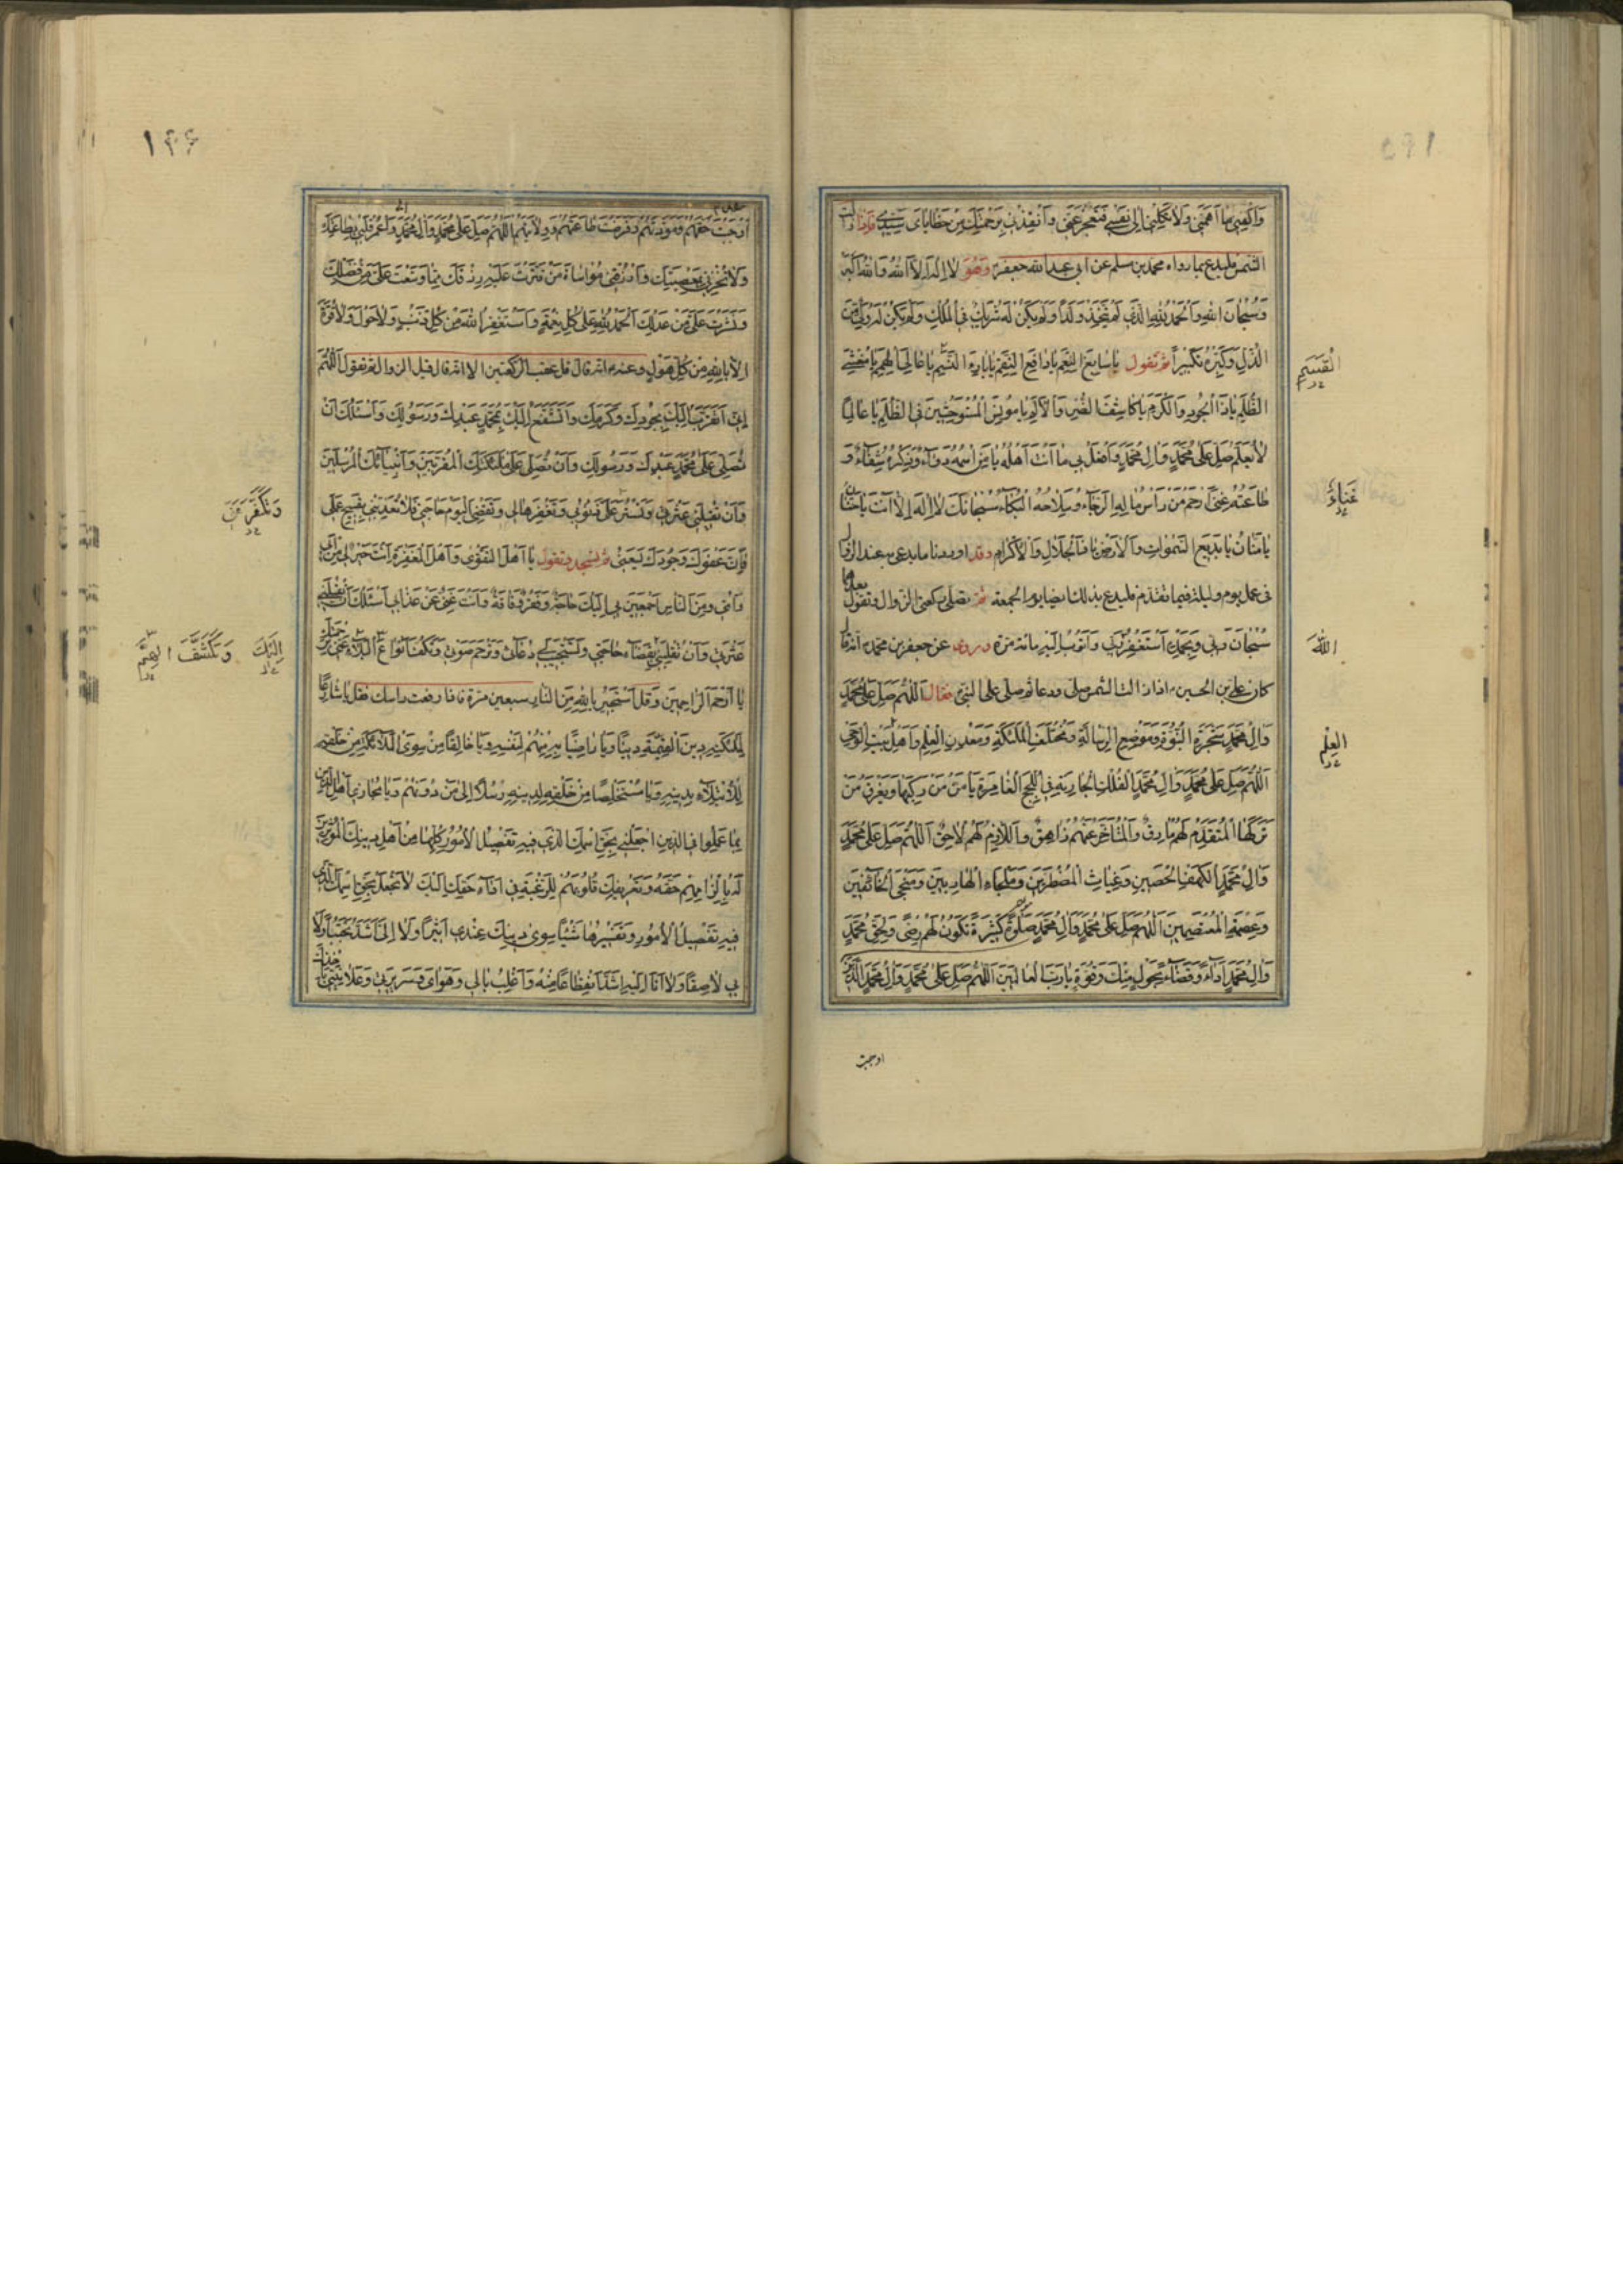 وَاكْفِنِي مَا أَهَمَّنِي وَلَا تَكِلْنِي إِلَى نَفْسِي فَتَعْجِزَ عَنِّي وَأَنْقِذْنِي بِرَحْمَتِكَ مِنْ خَطَايَايَ سَيِّدِي فاذا زالت
الشمس فليدع بما رواه محمد بن مسلم عن ابي عبد الله جعفر وهو لَا إِلَهَ إِلَّا اللهُ وَاللهُ أَكْبَرُ
وَسُبْحَانَ اللهِ وَالْحَمْدُ لِلَّهِ الَّذِي لَمْ يَتَّخِذْ وَلَدًا وَلَمْ يَكُنْ لَهُ شَرِيكٌ فِي الْمُلْكِ وَلَمْ يَكُنْ لَهُ وَلِيٌّ مِنَ
الذُّلِّ وَكَبِّرْهُ تَكْبِيرًا ثم تقول يَا سَابِغَ النِّعَمِ يَا دَافِعَ النِّقَمِ يَا بَارِئَ النَّسَمِ يَا عَالِيَ الْهِمَمِ يَا مُغْشِيَ
الظُّلَمِ يَا ذَا الْجُودِ وَالْكَرَمِ يَا كَاشِفَ الضُّرِّ وَالْأَلَمِ يَا مُونِسَ الْمُسْتَوْحِشِينَ فِي الظُّلَمِ يَا عَالِمًا
لَا يُعَلَّمُ صَلِّ عَلَى مُحَمَّدٍ وَآلِ مُحَمَّدٍ وَافْعَلْ بِي مَا أَنْتَ أَهْلُهُ يَا مَنِ اسْمُهُ دَوَاءٌ وَذِكْرُهُ شِفَاءٌ وَ
طَاعَتُهُ غِنًى ارْحَمْ مَنْ رَأْسُ مَالِهِ الرَّجَاءُ وَسِلَاحُهُ الْبُكَاءُ سُبْحَانَكَ لَا إِلَهَ إِلَّا أَنْتَ يَا حَنَّانُ
يَا مَنَّانُ يَا بَدِيعَ السَّمَوَاتِ وَالْأَرْضِ يَا ذَا الْجَلَالِ وَالْإِكْرَامِ وقد اوردنا ما يدعى به عند الزوال
في عمل يوم وليلة فيما تقدم فليدع بذلك ايضا يوم الجمعة ثم يصلي ركعتي الزوال وتقول بعدها
سُبْحَانَ رَبِّي وَبِحَمْدِهِ أَسْتَغْفِرُ رَبِّي وَأَتُوبُ إِلَيْهِ مائة مرة وروى عن جعفر بن محمد انه قال
كان علي بن الحسين اذا زالت الشمس صلى ودعا ثم صلى على النبي فقال اللَّهُمَّ صَلِّ عَلَى مُحَمَّدٍ
وَآلِ مُحَمَّدٍ شَجَرَةِ النُّبُوَّةِ وَمَوْضِعِ الرِّسَالَةِ وَمُخْتَلَفِ الْمَلَائِكَةِ وَمَعْدِنِ الْعِلْمِ وَأَهْلِ بَيْتِ الْوَحْيِ
اللَّهُمَّ صَلِّ عَلَى مُحَمَّدٍ وَآلِ مُحَمَّدٍ الْفُلْكِ الْجَارِيَةِ فِي اللُّجَجِ الْغَامِرَةِ يَأْمَنُ مَنْ رَكِبَهَا وَيَغْرَقُ مَنْ
تَرَكَهَا الْمُتَقَدِّمُ لَهُمْ مَارِقٌ وَالْمُتَأَخِّرُ عَنْهُمْ زَاهِقٌ وَاللَّازِمُ لَهُمْ لَاحِقٌ اللَّهُمَّ صَلِّ عَلَى مُحَمَّدٍ
وَآلِ مُحَمَّدٍ الْكَهْفِ الْحَصِينِ وَغِيَاثِ الْمُضْطَرِّينَ وَمَلْجَاءِ الْهَارِبِينَ وَمَنْجَى الْخَائِفِينَ
وَعِصْمَةِ الْمُعْتَصِمِينَ اللَّهُمَّ صَلِّ عَلَى مُحَمَّدٍ وَآلِ مُحَمَّدٍ صَلَوةً كَثِيرَةً تَكُونُ لَهُمْ رِضًى وَلِحَقِّ مُحَمَّدٍ
وَآلِ مُحَمَّدٍ أَدَاءً وَقَضَاءً بِحَوْلٍ مِنْكَ وَقُوَّةٍ يَا رَبَّ الْعَالَمِينَ اللَّهُمَّ صَلِّ عَلَى مُحَمَّدٍ وَآلِ مُحَمَّدٍ الَّذِينَ
اوجبت
الْقَسَمِ
غَنَاءٌ
اللهَ
الْعِلْمِ
۱۴۶
أَوْجَبْتَ حَقَّهُمْ وَمَوَدَّتَهُمْ وَفَرَضْتَ طَاعَتَهُمْ وَوِلَايَتَهُمْ اللَّهُمَّ صَلِّ عَلَى مُحَمَّدٍ وَآلِ مُحَمَّدٍ وَاعْمُرْ قَلْبِي بِطَاعَتِكَ
وَلَا تُخْزِنِي بِمَعْصِيَتِكَ وَارْزُقْنِي مُوَاسَاةَ مَنْ قَتَّرْتَ عَلَيْهِ رِزْقَكَ بِمَا وَسَّعْتَ عَلَيَّ مِنْ فَضْلِكَ
وَنَشَرْتَ عَلَيَّ مِنْ عَدْلِكَ الْحَمْدُ لِلَّهِ عَلَى كُلِّ نِعْمَةٍ وَأَسْتَغْفِرُ اللهَ مِنْ كُلِّ ذَنْبٍ وَلَا حَوْلَ وَلَا قُوَّةَ
إِلَّا بِاللهِ مِنْ كُلِّ هَوْلٍ وعنه انه قال قل عقيب الركعتين الا انه قال قبل الزوال ثم تقول اللَّهُمَّ
إِنِّي أَتَقَرَّبُ إِلَيْكَ بِجُودِكَ وَكَرَمِكَ وَأَتَشَفَّعُ إِلَيْكَ بِمُحَمَّدٍ عَبْدِكَ وَرَسُولِكَ وَأَسْئَلُكَ أَنْ
تُصَلِّيَ عَلَى مُحَمَّدٍ عَبْدِكَ وَرَسُولِكَ وَأَنْ تُصَلِّيَ عَلَى مَلَائِكَتِكَ الْمُقَرَّبِينَ وَأَنْبِيَائِكَ الْمُرْسَلِينَ
وَأَنْ تُقِيلَنِي عَثْرَتِي وَتَسْتُرَ عَلَيَّ ذُنُوبِي وَتَغْفِرَهَا لِي وَتَقْضِيَ الْيَوْمَ حَاجَتِي فَلَا تُعَذِّبْنِي بِقَبِيحِ عَمَلِي
فَإِنَّ عَفْوَكَ وَجُودَكَ يَسَعُنِي ثم تسجد وتقول يَا أَهْلَ التَّقْوَى وَأَهْلَ الْمَغْفِرَةِ أَنْتَ خَيْرٌ لِي مِنْ أَبِي
وَأُمِّي وَمِنَ النَّاسِ أَجْمَعِينَ بِي إِلَيْكَ حَاجَةٌ وَفَقْرٌ وَفَاقَةٌ وَأَنْتَ غَنِيٌّ عَنْ عَذَابِي أَسْئَلُكَ أَنْ تُقِيلَنِي
عَثْرَتِي وَأَنْ تَقْلِبَنِي بِقَضَاءِ حَاجَتِي وَتَسْتَجِيبَ لِي دُعَائِي وَتَرْحَمَ صَوْتِي وَتَكُفَّ أَنْوَاعَ الْبَلَاءِ عَنِّي بِرَحْمَتِكَ
يَا أَرْحَمَ الرَّاحِمِينَ وَقل أَسْتَجِيرُ بِاللهِ مِنَ النَّارِ سبعين مرة فاذا رفعت راسك فقل يَا شَارِعًا
لِمَلَائِكَتِهِ دِينَ الْقَيِّمَةِ دِينًا وَيَا رَاضِيًا بِهِ مِنْهُمْ لِنَفْسِهِ وَيَا خَالِقًا مَنْ سِوَى الْمَلَائِكَةِ مِنْ خَلْقِهِ
لِلْابْتِلَاءِ بِدِينِهِ وَيَا مُسْتَخْلِصًا مِنْ خَلْقِهِ لِدِينِهِ رُسُلًا إِلَى مَنْ دُونَهُمْ وَيَا مُجَازِيَ أَهْلِ الدِّينِ
بِمَا عَمِلُوا فِي الدِّينِ اجْعَلْنِي بِحَقِّ اسْمِكَ الَّذِي فِيهِ تَفْصِيلُ الْأُمُورِ كُلِّهَا مِنْ أَهْلِ دِينِكَ الْمُؤْثِرِينَ
لَهُ بِإِلْزَامِهِمْ حَقَّهُ وَتَفْرِيغِكَ قُلُوبَهُمْ لِلرَّغْبَةِ فِي أَدَاءِ حَقِّكَ إِلَيْكَ لَا تَجْعَلْ بِحَقِّ اسْمِكَ الَّذِي
فِيهِ تَفْصِيلُ الْأُمُورِ وَتَفْسِيرُهَا شَيْئًا سِوَى دِينِكَ عِنْدِي أَثِيرًا وَلَا إِلَيَّ أَشَدَّ تَحَبُّبًا وَلَا
بِي لَاصِقًا وَلَا أَنَا إِلَيْهِ أَشَدَّ انْقِطَاعًا مِنْهُ وَأَغْلِبْ بَالِي وَهَوَايَ وَسَرِيرَتِي وَعَلَانِيَتِي
وَتُكَفِّرَ عَنِّي
إِلَيْكَ
وَتَكْشِفَ الْهَمَّ